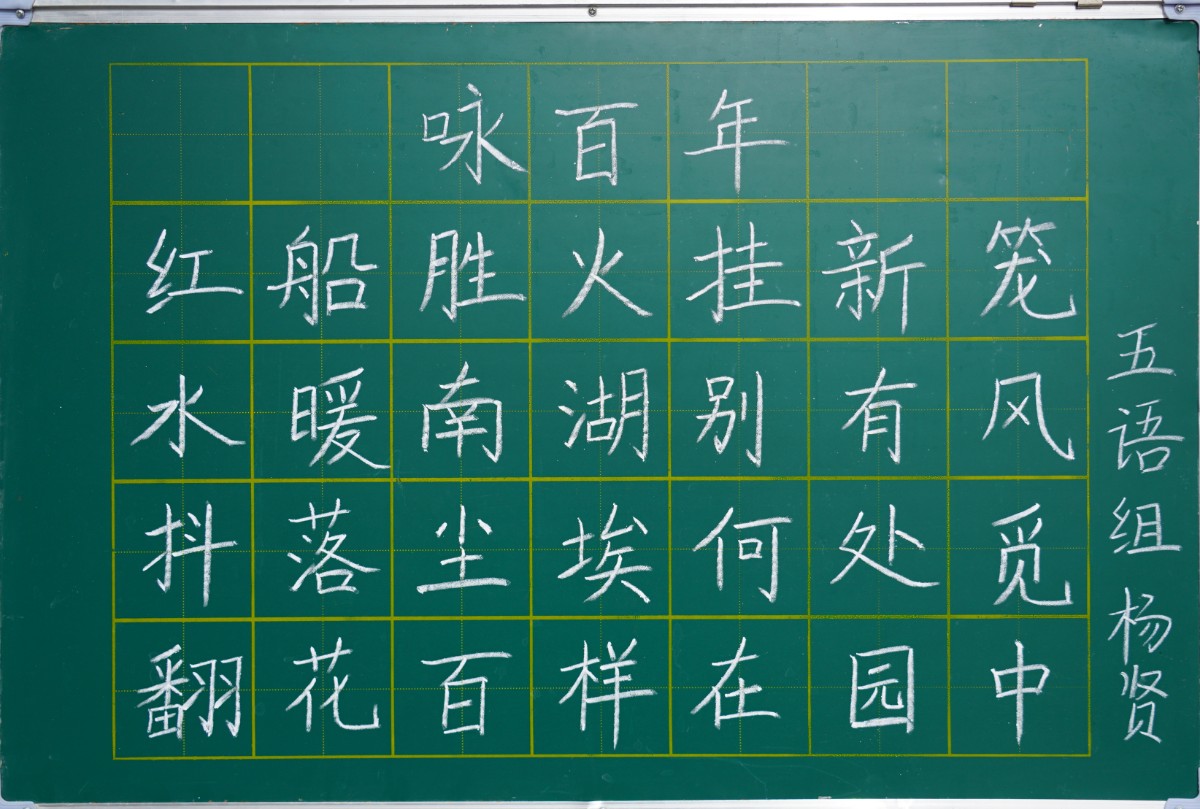 咏百年
红船胜火挂新笼
水暖南湖别有风
抖落尘埃何处觅
翻花百样在园中
五语组杨贤